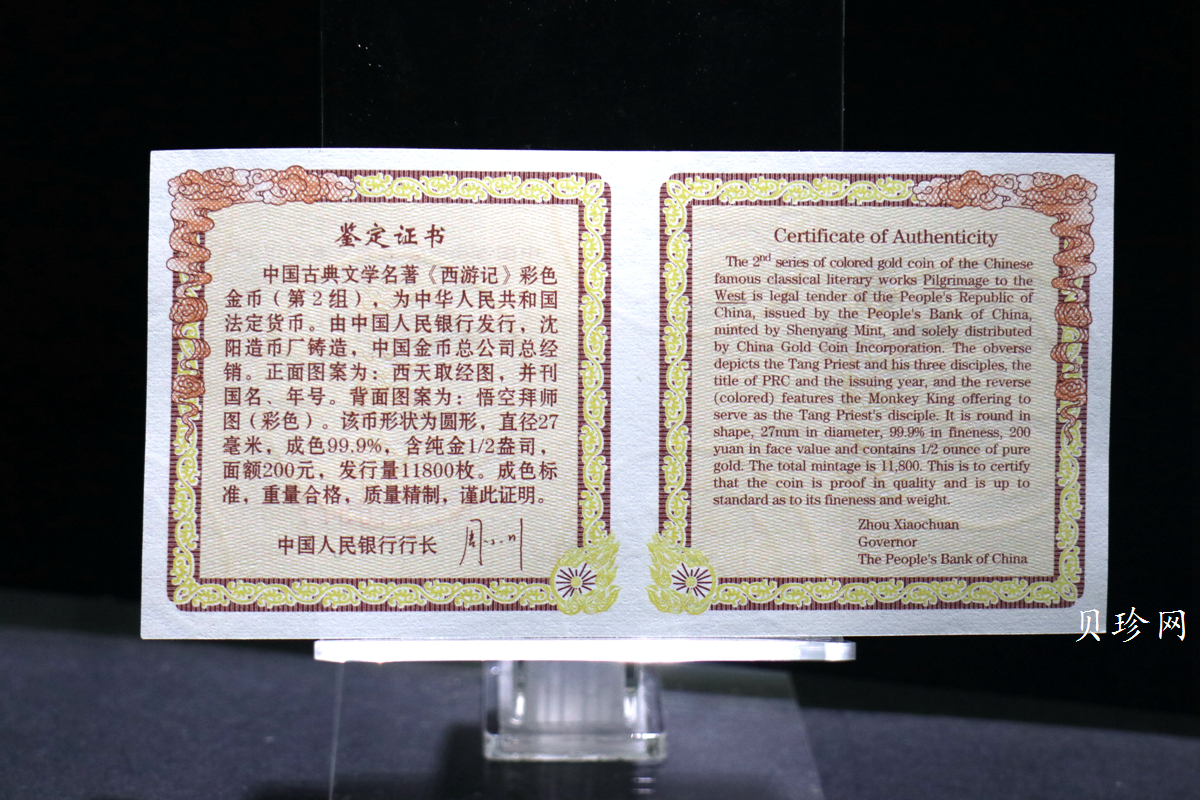 鉴定证书
中国古典文学名著《西游记》彩色
金币（第2组），为中华人民共和国
法定货币。由中国人民银行发行，沈
阳造币厂铸造，中国金币总公司总经
销。正面图案为：西天取经图，并刊
国名、年号。背面图案为：悟空拜师
图（彩色）。该币形状为圆形，直径27
毫米，成色99.9%，含纯金1/2盎司，
面额200元，发行量11800枚。成色标
准，重量合格，质量精制，谨此证明。
中国人民银行行长 周小川
Certificate of Authenticity
The 2nd series of colored gold coin of the Chinese
famous classical literary works Pilgrimage to the
West is legal tender of the People's Republic of
China, issued by the People's Bank of China,
minted by Shenyang Mint, and solely distributed
by China Gold Coin Incorporation. The obverse
depicts the Tang Priest and his three disciples, the
title of PRC and the issuing year, and the reverse
(colored) features the Monkey King offering to
serve as the Tang Priest's disciple. It is round in
shape, 27mm in diameter, 99.9% in fineness, 200
yuan in face value and contains 1/2 ounce of pure
gold. The total mintage is 11,800. This is to certify
that the coin is proof in quality and is up to
standard as to its fineness and weight.
Zhou Xiaochuan
Governor
The People's Bank of China
贝珍网